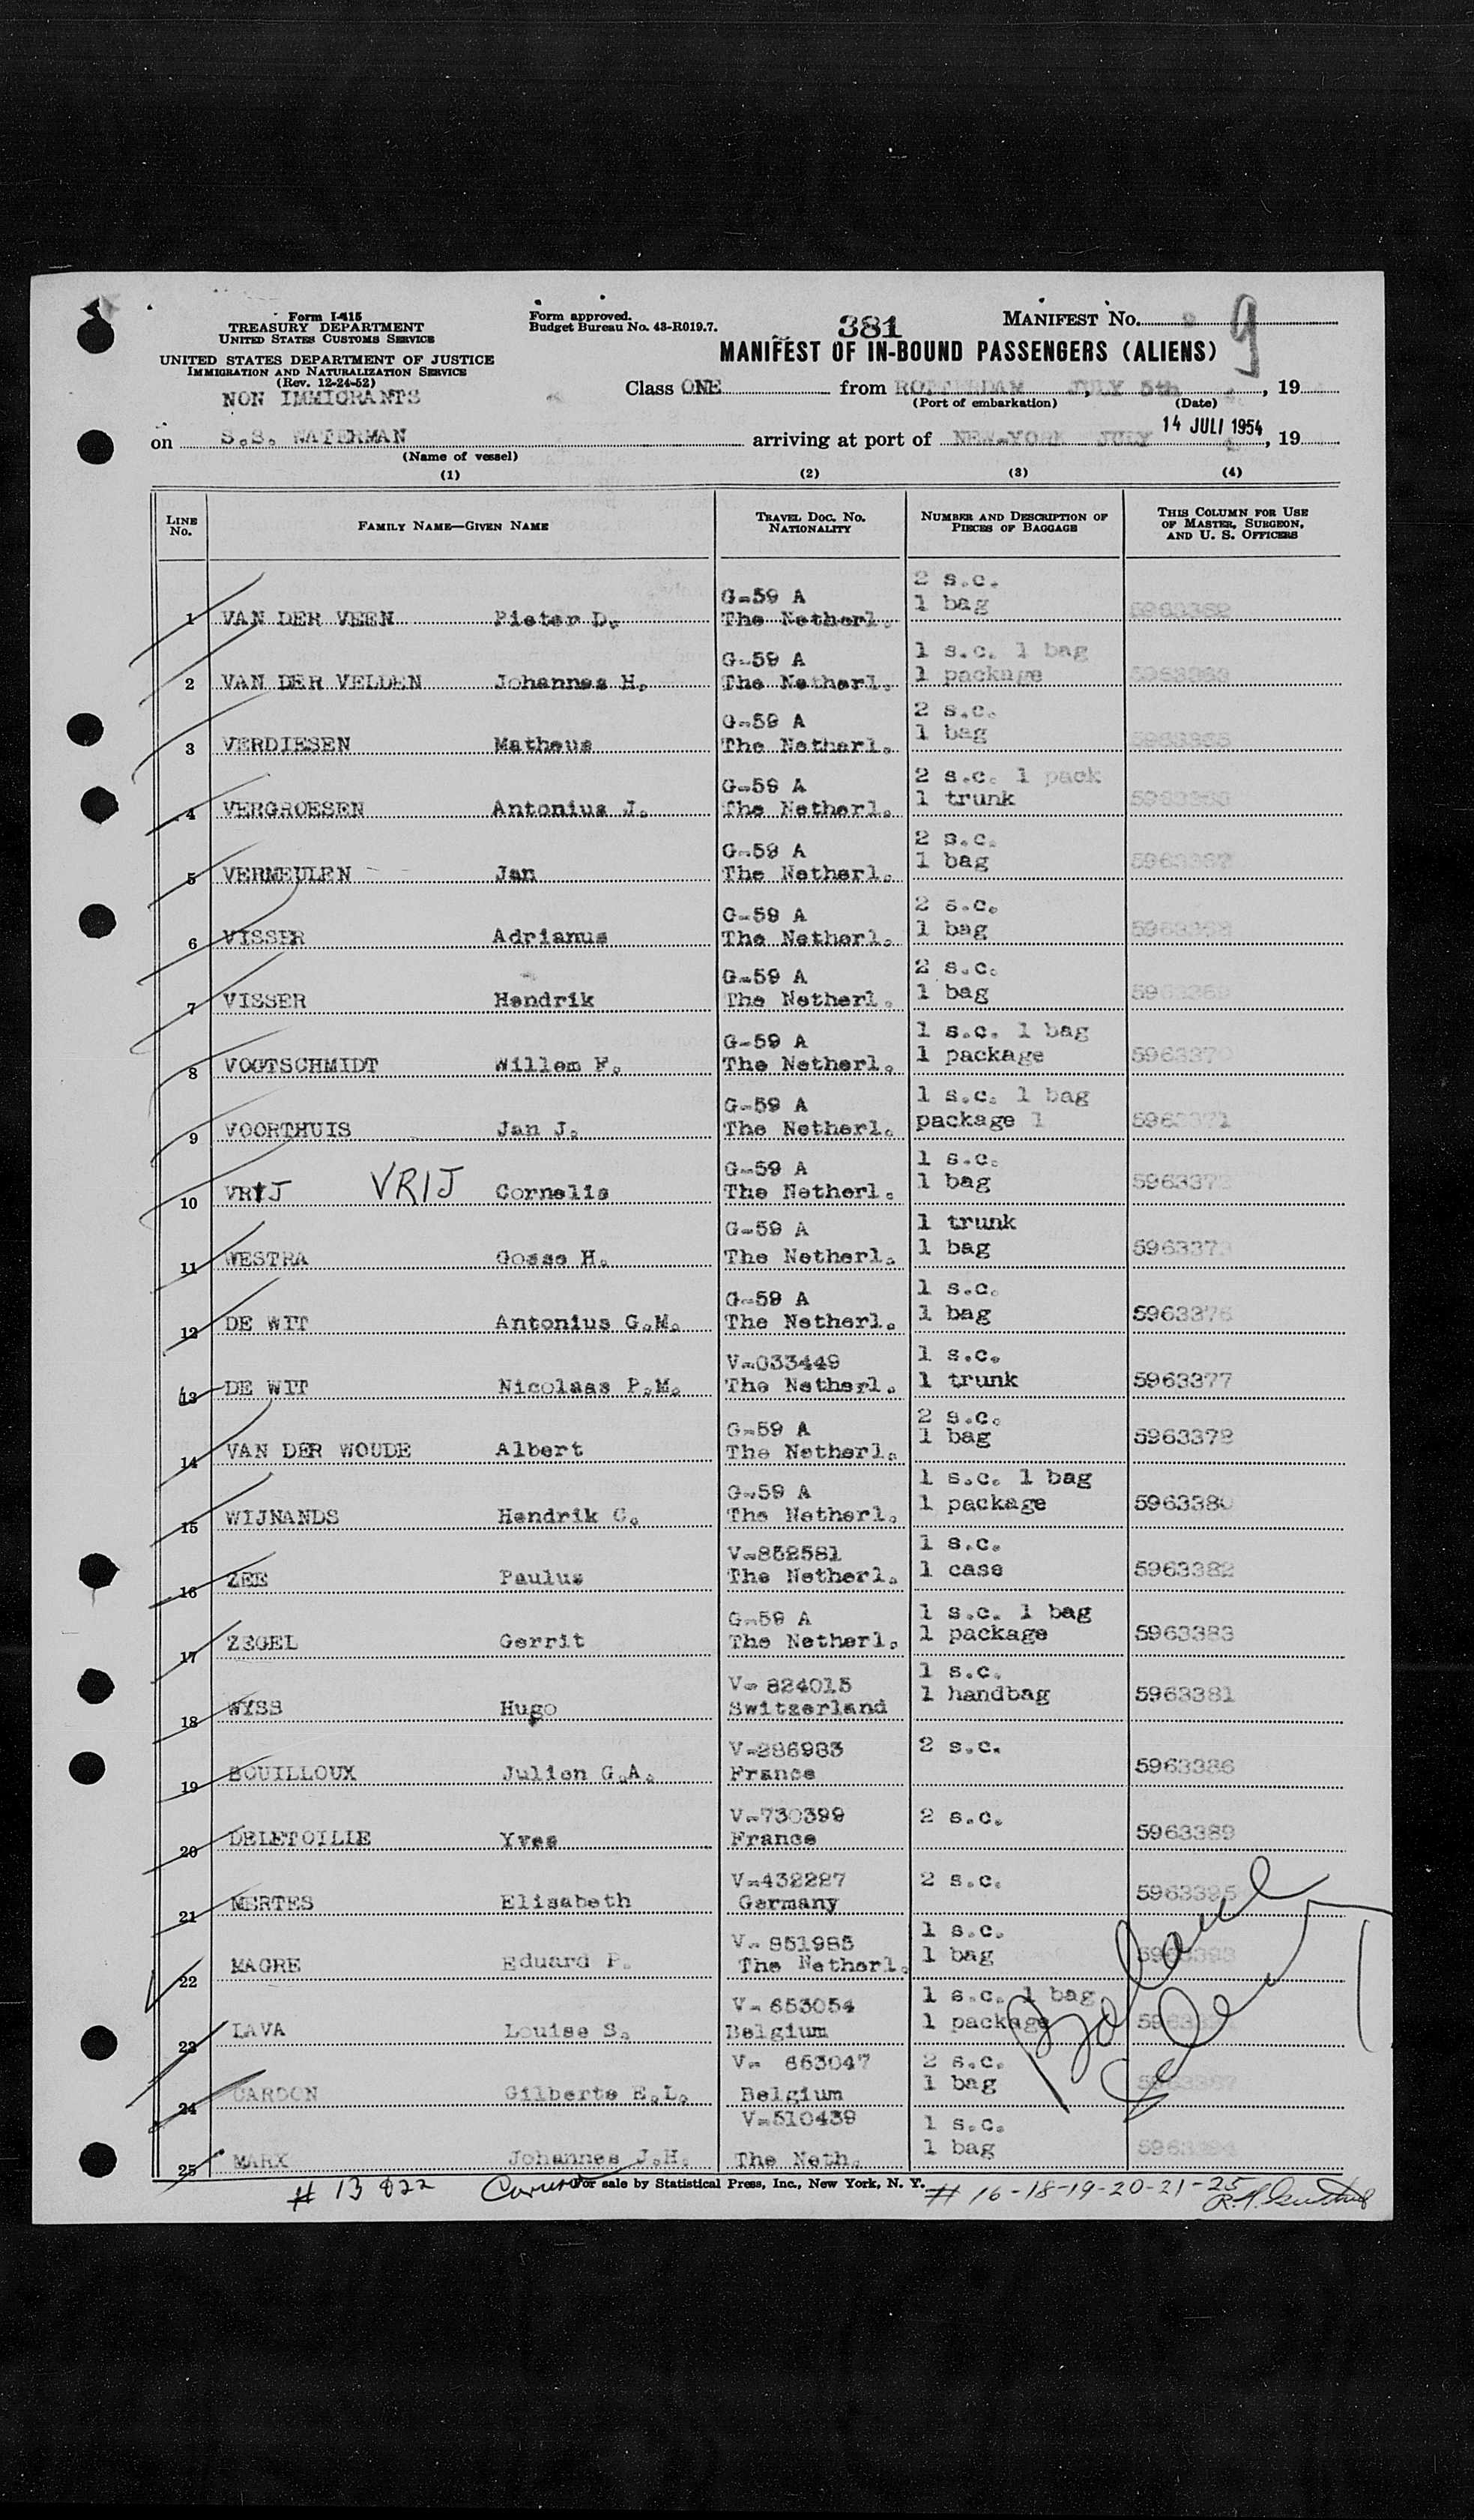 Form I-415
TREASURY DEPARTMENT
UNITED STATES CUSTOMS SERVICE
UNITED STATES DEPARTMENT OF JUSTICE
IMMIGRATION AND NATURALIZATION SERVICE
(Rev. 12-24-52)
NON IMMIGRANTS
Form approved.
Budget Bureau No. 43-R019.7.
381
MANIFEST No. 9
MANIFEST OF IN-BOUND PASSENGERS (ALIENS)
Class ONE from ROTTERDAM JULY 5th, 19
(Port of embarkation) (Date)
14 JULI 1954
on S.S. WATERMAN arriving at port of NEW-YORK JULY, 19
(Name of vessel)
(1) (2) (3) (4)
LINE No. FAMILY NAME—GIVEN NAME TRAVEL DOC. No. NATIONALITY NUMBER AND DESCRIPTION OF PIECES OF BAGGAGE THIS COLUMN FOR USE OF MASTER, SURGEON, AND U. S. OFFICERS
G-59 A 2 s.c.
1 VAN DER VEEN Pieter D. The Netherl. 1 bag
G-59 A 1 s.c. 1 bag
2 VAN DER VELDEN Johannes H. The Netherl. 1 package
G-59 A 2 s.c.
3 VERDIESEN Matheus The Netherl. 1 bag
G-59 A 2 s.c. 1 pack
4 VERGROESEN Antonius J. The Netherl. 1 trunk
G-59 A 2 s.c.
5 VERMEULEN Jan The Netherl. 1 bag
G-59 A 2 s.c.
6 VISSER Adrianus The Netherl. 1 bag
G-59 A 2 s.c.
7 VISSER Hendrik The Netherl. 1 bag
G-59 A 1 s.c. 1 bag
8 VOGTSCHMIDT Willem F. The Netherl. 1 package 5963370
G-59 A 1 s.c. 1 bag
9 VOORTHUIS Jan J. The Netherl. package 1 5963371
G-59 A 1 s.c.
10 VRIJ VRIJ Cornelis The Netherl. 1 bag 5963372
G-59 A 1 trunk
11 WESTRA Gosse H. The Netherl. 1 bag 5963373
G-59 A 1 s.c.
12 DE WIT Antonius G.M. The Netherl. 1 bag 5963376
V-033449 1 s.c.
13 DE WIT Nicolaas P.M. The Netherl. 1 trunk 5963377
G-59 A 2 s.c.
14 VAN DER WOUDE Albert The Netherl. 1 bag 5963378
G-59 A 1 s.c. 1 bag
15 WIJNANDS Hendrik C. The Netherl. 1 package 5963380
V-852581 1 s.c.
16 ZEE Paulus The Netherl. 1 case 5963382
G-59 A 1 s.c. 1 bag
17 ZEGEL Gerrit The Netherl. 1 package 5963383
V- 824015 1 s.c.
18 WYSS Hugo Switzerland 1 handbag 5963381
V-286983 2 s.c.
19 BOUILLOUX Julien G.A. France 5963386
V-730399 2 s.c.
20 DELETOILIE Yves France 5963389
V-432227 2 s.c.
21 MERTES Elisabeth Germany 5963395
V- 851985 1 s.c.
22 MAGRE Eduard P. The Netherl. 1 bag
V- 653054 1 s.c. 1 bag
23 LAVA Louise S. Belgium 1 package
V- 653047 2 s.c.
24 CARDON Gilberte E.L. Belgium 1 bag
V-510439 1 s.c.
25 MARX Johannes J.H. The Neth. 1 bag
Balance
For sale by Statistical Press, Inc., New York, N. Y.
# 13 & 22 # 16-18-19-20-21-25